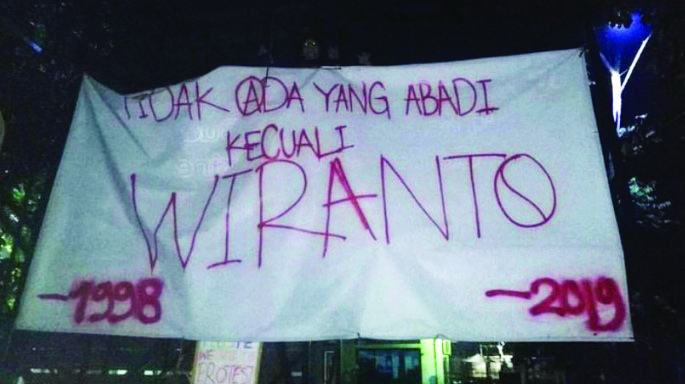 TIDAK ADA YANG ABADI
KECUALI
WIRANTO
-1998
-2019
WE
PROTEST